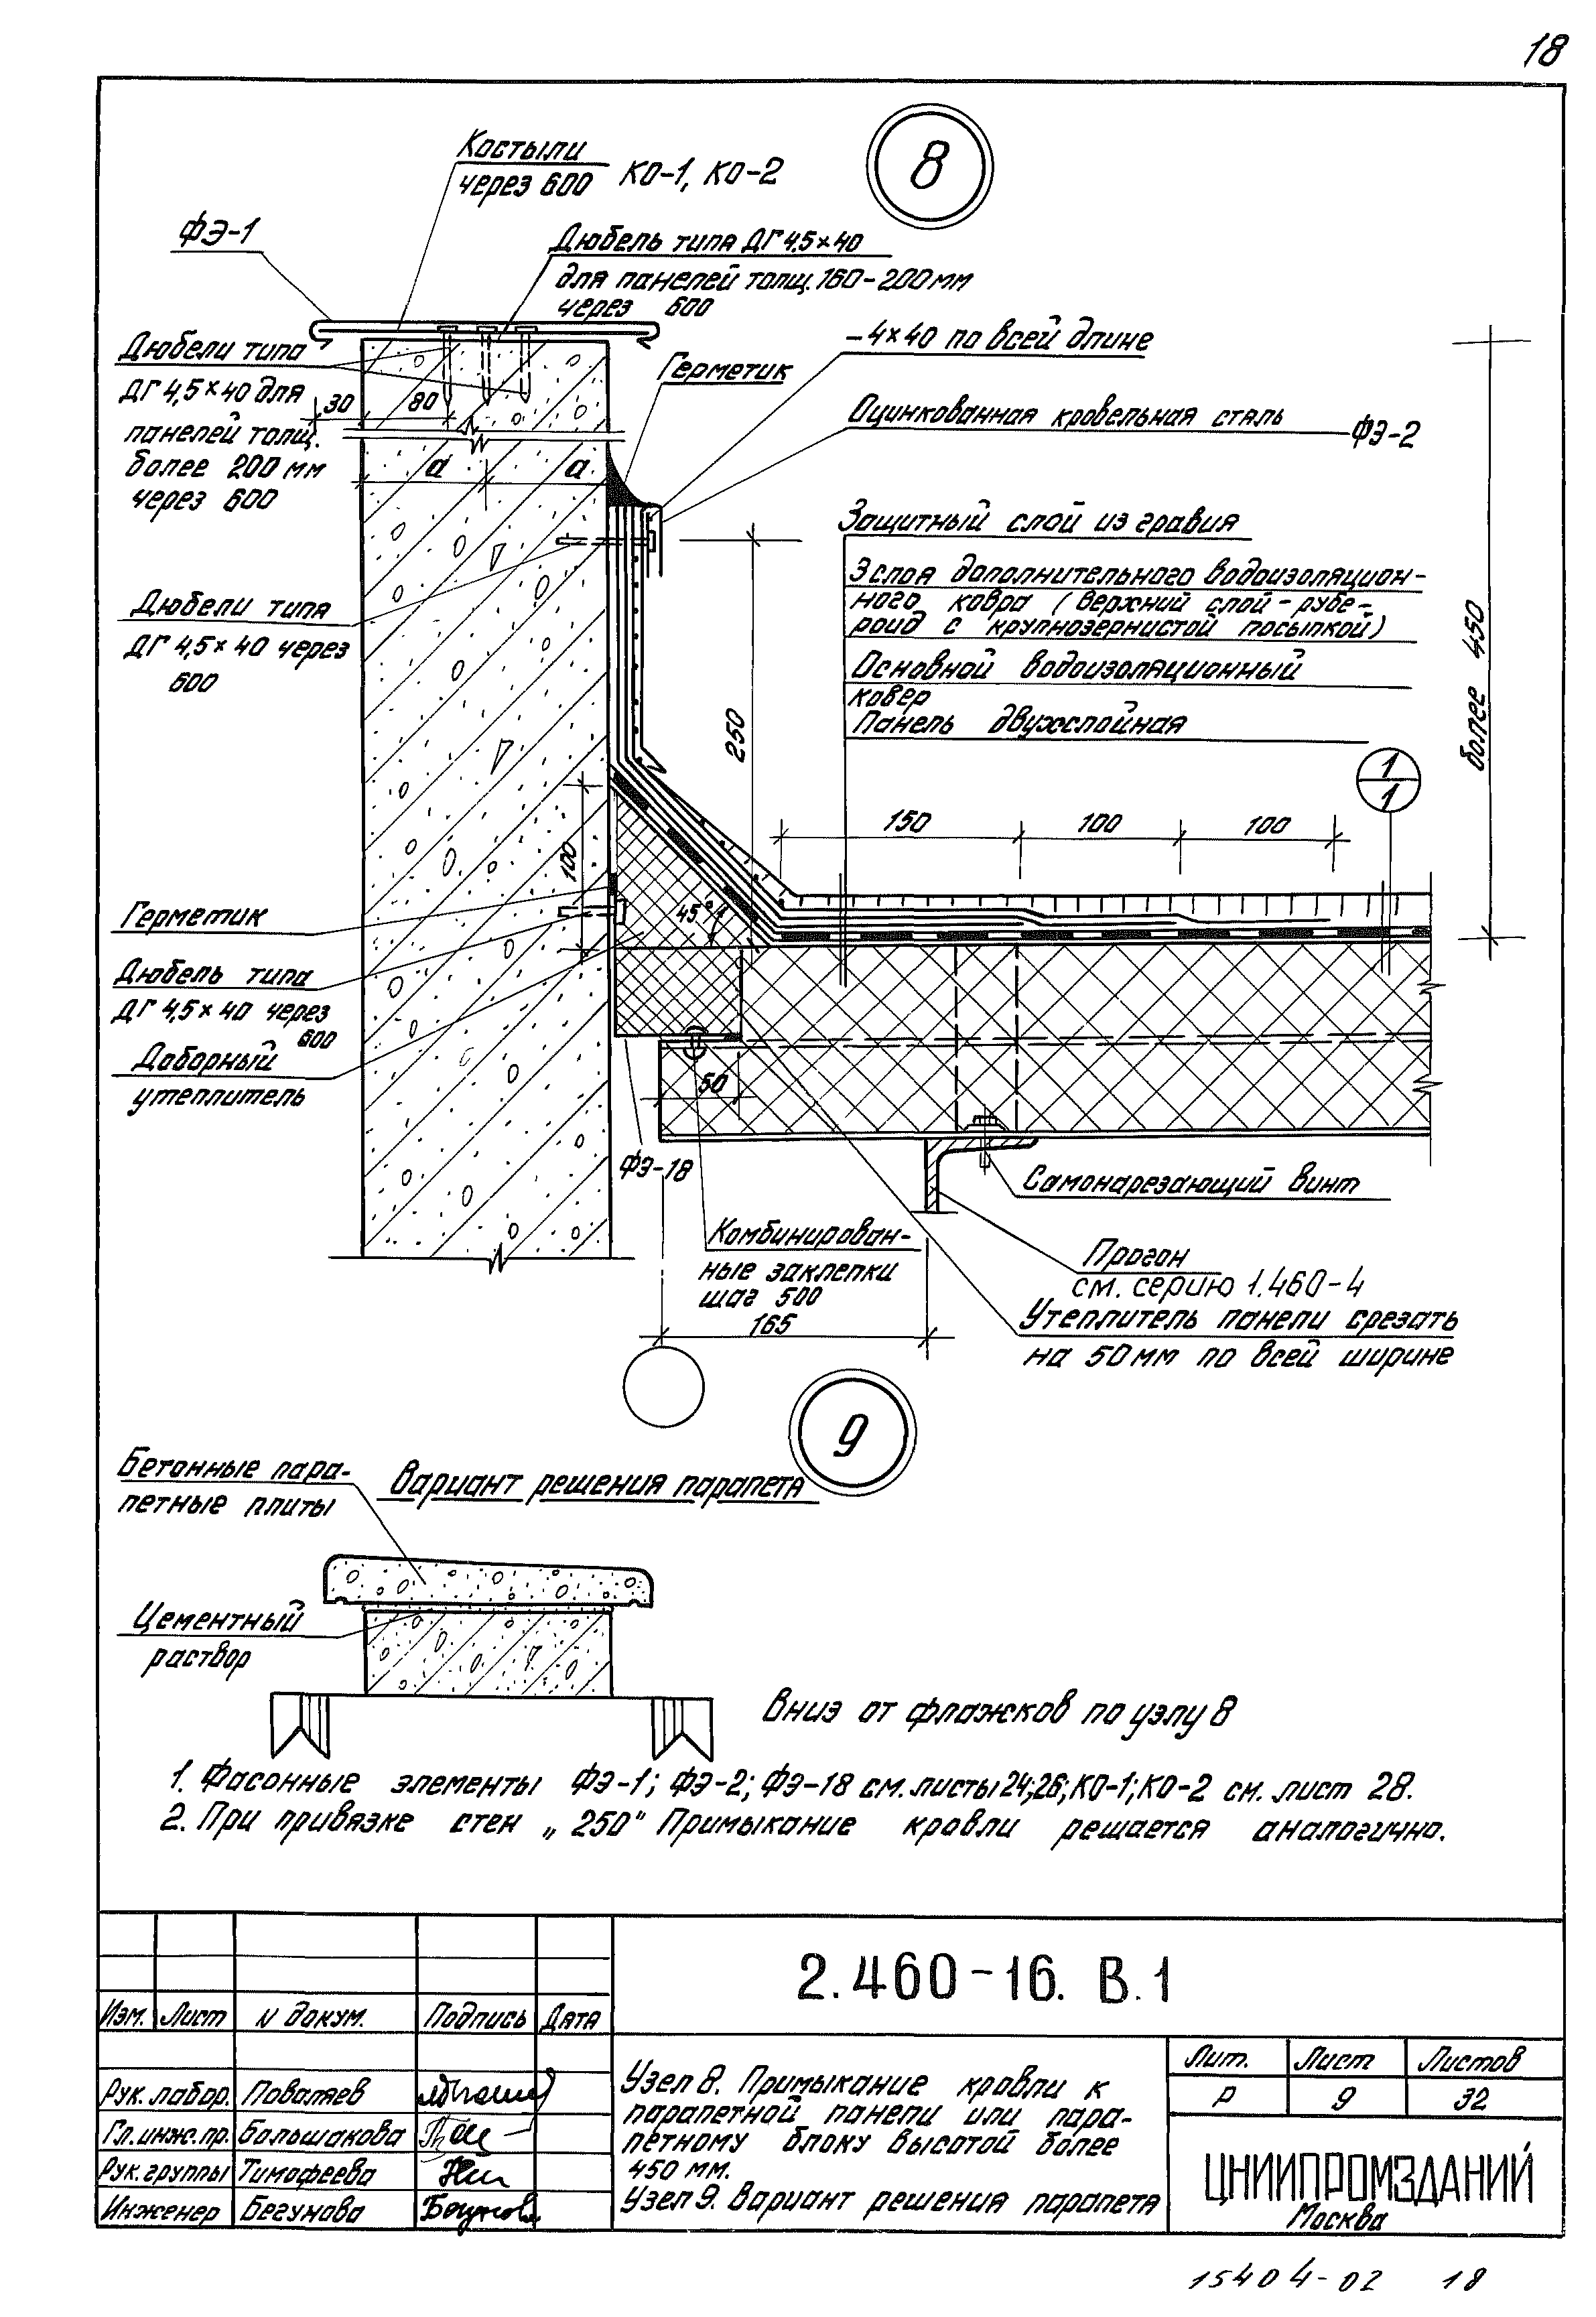 18
8
Костыли
через 600 КО-1, КО-2
ФЭ-1
Дюбель типа ДГ 4,5×40
для панелей толщ. 160-200 мм
через 600
Дюбели типа
ДГ 4,5×40 для
панелей толщ.
более 200 мм
через 600
30
80
а
а
Герметик
-4×40 по всей длине
Оцинкованная кровельная сталь
ФЭ-2
Защитный слой из гравия
3 слоя дополнительного водоизоляцион-
ного ковра (верхний слой - рубе-
роид с крупнозернистой посыпкой)
Основной водоизоляционный
ковер
Панель двухслойная
Дюбели типа
ДГ 4,5×40 через
600
250
более 450
1
1
150
100
100
100
45°
Герметик
Дюбель типа
ДГ 4,5×40 через
600
Доборный
утеплитель
50
ФЭ-18
Самонарезающий винт
Комбинирован-
ные заклепки
шаг 500
165
Прогон
см. серию 1.460-4
Утеплитель панели срезать
на 50 мм по всей ширине
9
Бетонные пара-
петные плиты
Вариант решения парапета
Цементный
раствор
Вниз от флажков по узлу 8
1. Фасонные элементы ФЭ-1; ФЭ-2; ФЭ-18 см. листы 24; 26; КО-1; КО-2 см. лист 28.
2. При привязке стен „250" Примыкание кровли решается аналогично.
2.460-16. В.1
Изм. Лист N докум. Подпись Дата
Рук. лабор. Поваляев
Гл. инж. пр. Большакова
Рук. группы Тимофеева
Инженер Бегунова
Узел 8. Примыкание кровли к
парапетной панели или пара-
петному блоку высотой более
450 мм.
Узел 9. Вариант решения парапета
Лит. Лист Листов
Р 9 32
ЦНИИПРОМЗДАНИЙ
Москва
15404-02 18